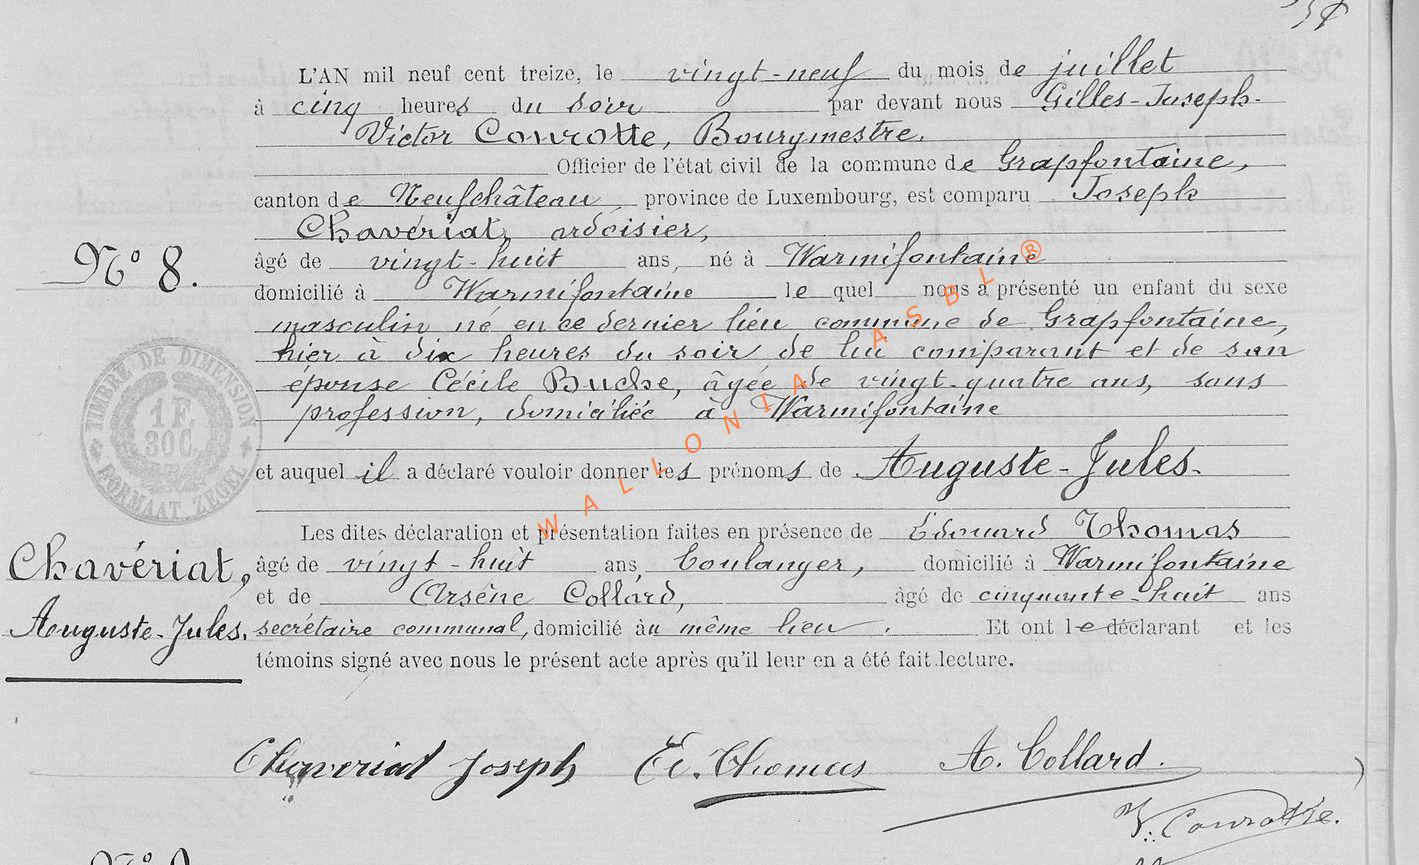 L'AN mil neuf cent treize, le vingt-neuf du mois de juillet
à cinq heures du soir par devant nous Gilles-Joseph-
Victor Conrotte, Bourgmestre.
Officier de l'état civil de la commune de Grapfontaine,
canton de Neufchâteau province de Luxembourg, est comparu Joseph
Chavériat, ardoisier,
N° 8.
âgé de vingt-huit ans, né à Warmifontaine
domicilié à Warmifontaine le quel nous a présenté un enfant du sexe
masculin né en ce dernier lieu commune de Grapfontaine,
hier à dix heures du soir de lui comparant et de son
épouse Cécile Buche, âgée de vingt-quatre ans, sans
profession, domiciliée à Warmifontaine
TIMBRE DE DIMENSION
1F
30C
FORMAAT ZEGEL
WALLONIA ASBL ®
et auquel il a déclaré vouloir donner les prénoms de Auguste-Jules.
Les dites déclaration et présentation faites en présence de Edouard Thomas
Chavériat,
Auguste-Jules.
âgé de vingt-huit ans, boulanger, domicilié à Warmifontaine
et de Arsène Collard, âgé de cinquante-huit ans
secrétaire communal, domicilié au même lieu. Et ont le déclarant et les
témoins signé avec nous le présent acte après qu'il leur en a été fait lecture.
Chaveriat Joseph E. Thomas A. Collard.
V. Conrotte.